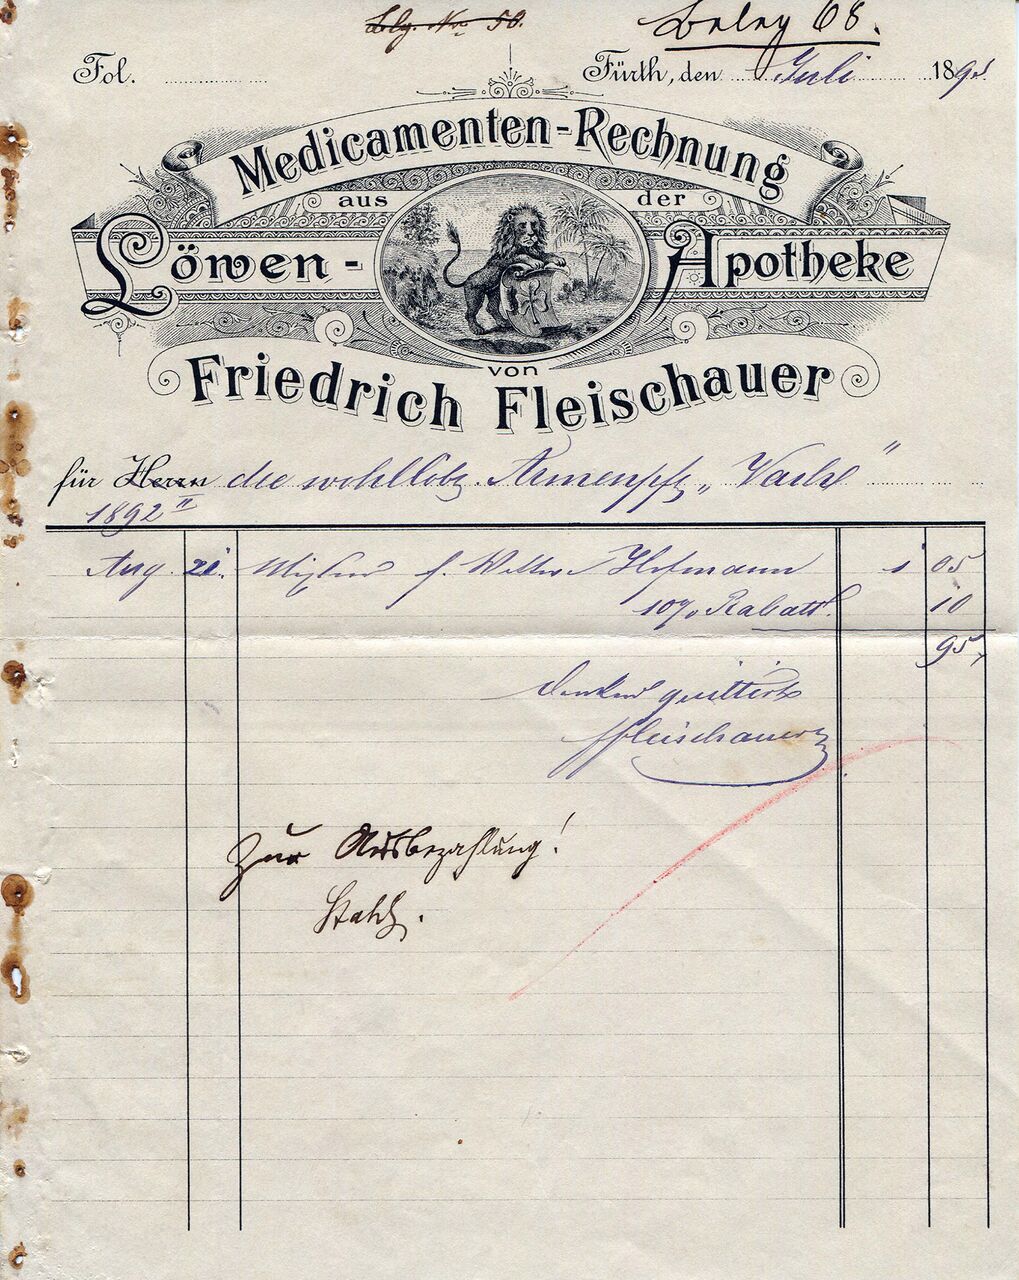 Blg. No 50.
Beleg 68.
Fol.
Fürth, den Juli 189
Medicamenten-Rechnung
aus der
Löwen-Apotheke
von
Friedrich Fleischauer
für Herrn die wohllöbl. Armenpflg „Vach"
1892
Aug. 21. f. Hofmann 1 05
10% Rabatt 10
95
dankend quittirt
Fleischauer
Zur Ausbezahlung!
Stahl.